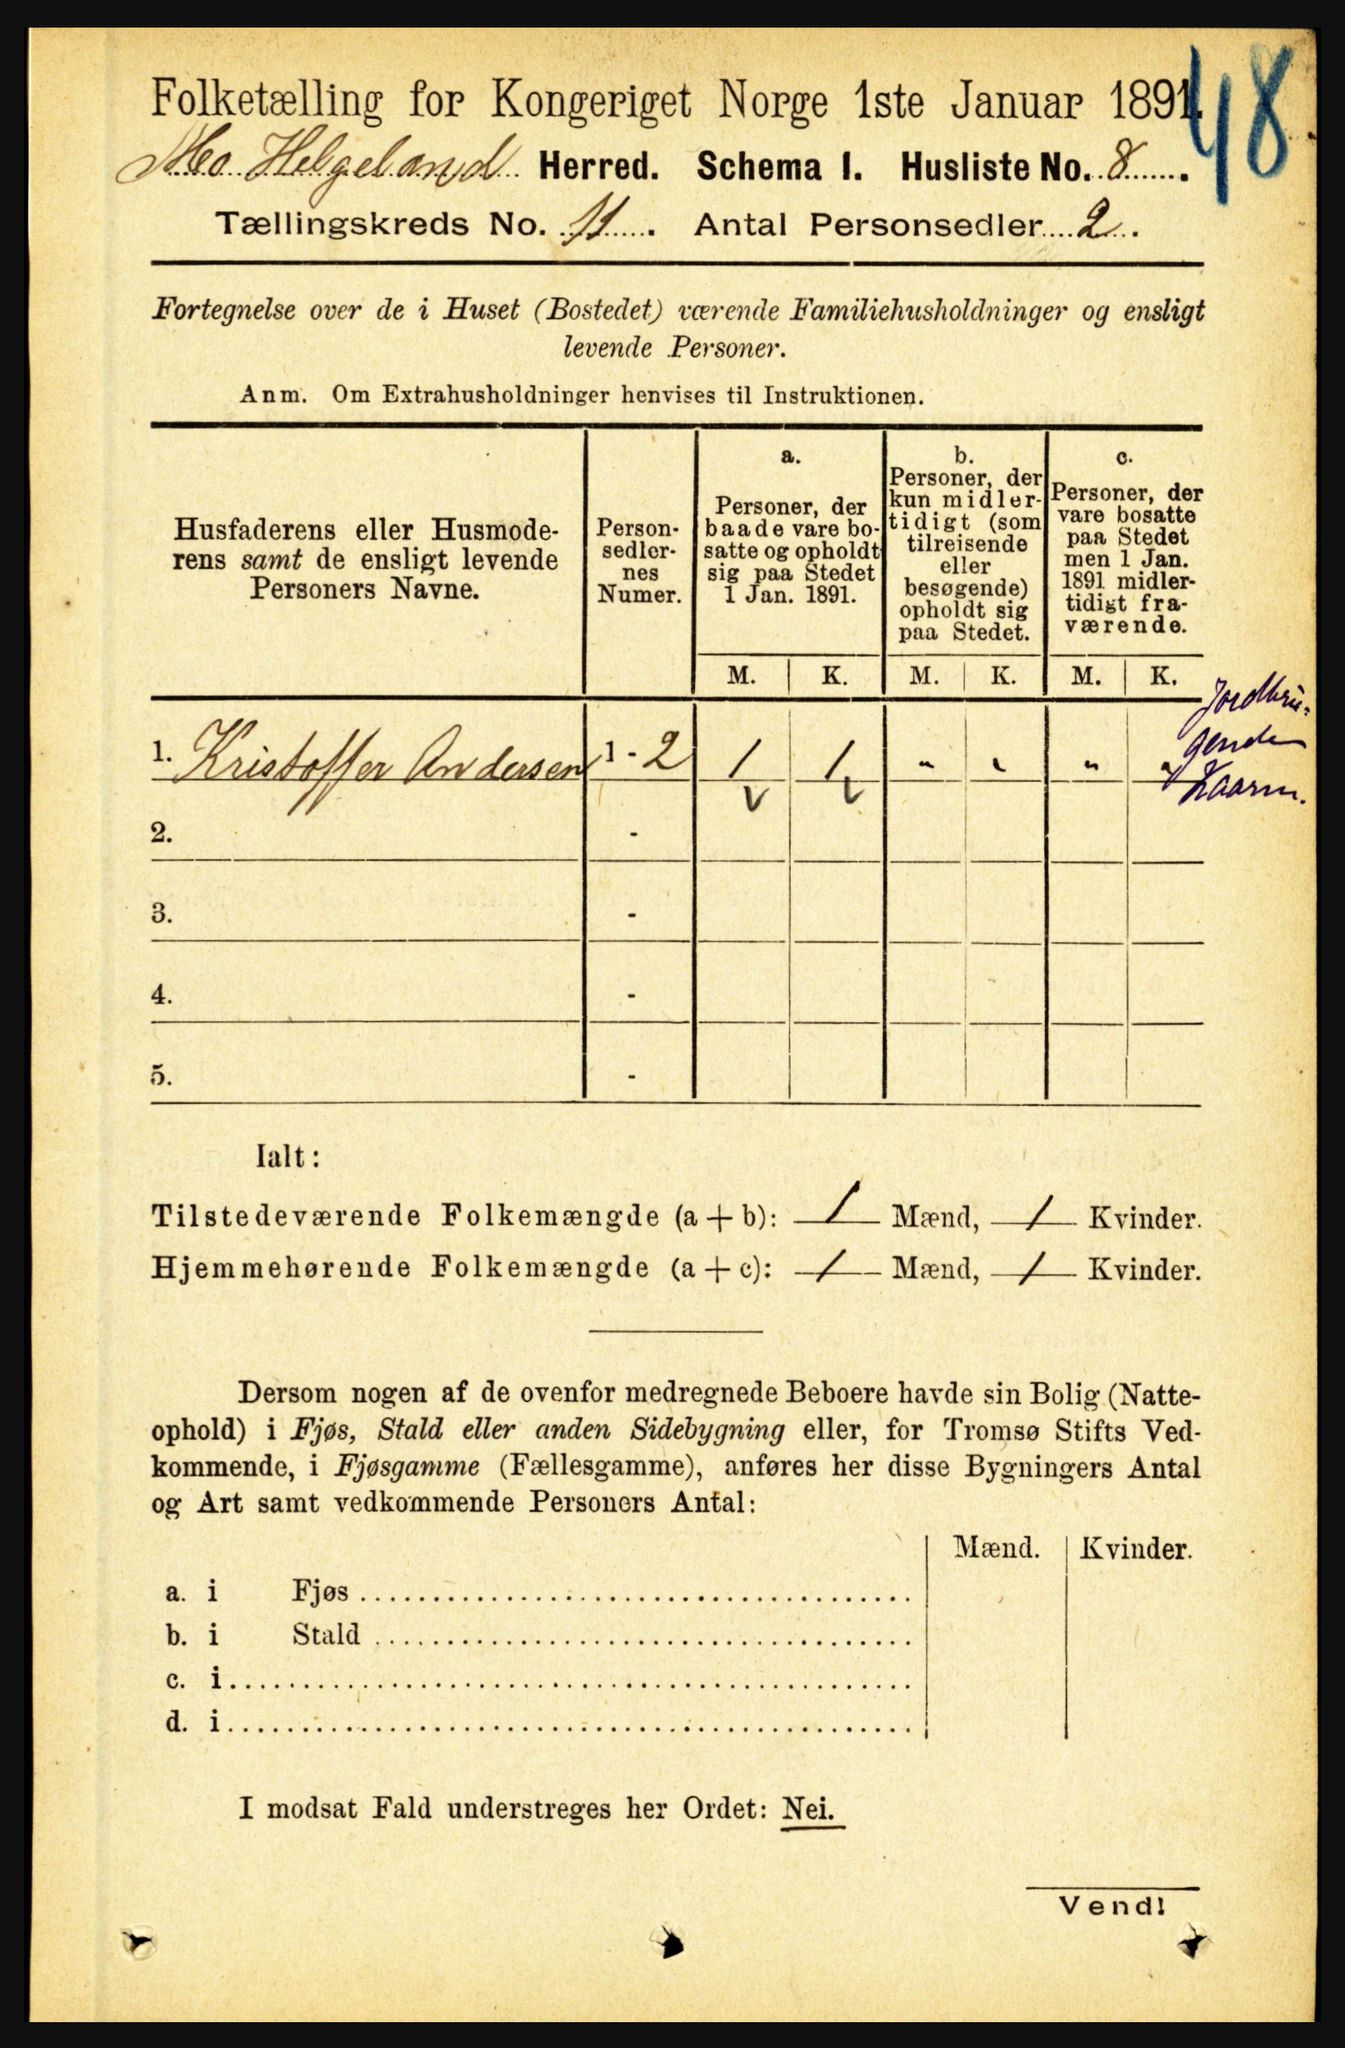 48
Folketælling for Kongeriget Norge 1ste Januar 1891.
Mo Helgeland Herred. Schema I. Husliste No. 8.
Tællingskreds No. 11. Antal Personsedler 2.
Fortegnelse over de i Huset (Bostedet) værende Familiehusholdninger og ensligt
levende Personer.
Anm. Om Extrahusholdninger henvises til Instruktionen.
Husfaderens eller Husmode-
rens samt de ensligt levende
Personers Navne.
Person-
sedler-
nes
Numer.
a.
Personer, der
baade vare bo-
satte og opholdt
sig paa Stedet
1 Jan. 1891.
b.
Personer, der
kun midler-
tidigt (som
tilreisende
eller
besøgende)
opholdt sig
paa Stedet.
c.
Personer, der
vare bosatte
paa Stedet
men 1 Jan.
1891 midler-
tidigt fra-
værende.
M. K. M. K. M. K.
1. Kristoffer Andersen 1 - 2 1 1 " " " "
Jordbru-
gende
2. -
3. -
4. -
5. -
Ialt:
Tilstedeværende Folkemængde (a + b): 1 Mænd, 1 Kvinder.
Hjemmehørende Folkemængde (a + c): 1 Mænd, 1 Kvinder.
Dersom nogen af de ovenfor medregnede Beboere havde sin Bolig (Natte-
ophold) i Fjøs, Stald eller anden Sidebygning eller, for Tromsø Stifts Ved-
kommende, i Fjøsgamme (Fællesgamme), anføres her disse Bygningers Antal
og Art samt vedkommende Personers Antal:
Mænd. Kvinder.
a. i Fjøs
b. i Stald
c. i
d. i
I modsat Fald understreges her Ordet: Nei.
Vend!